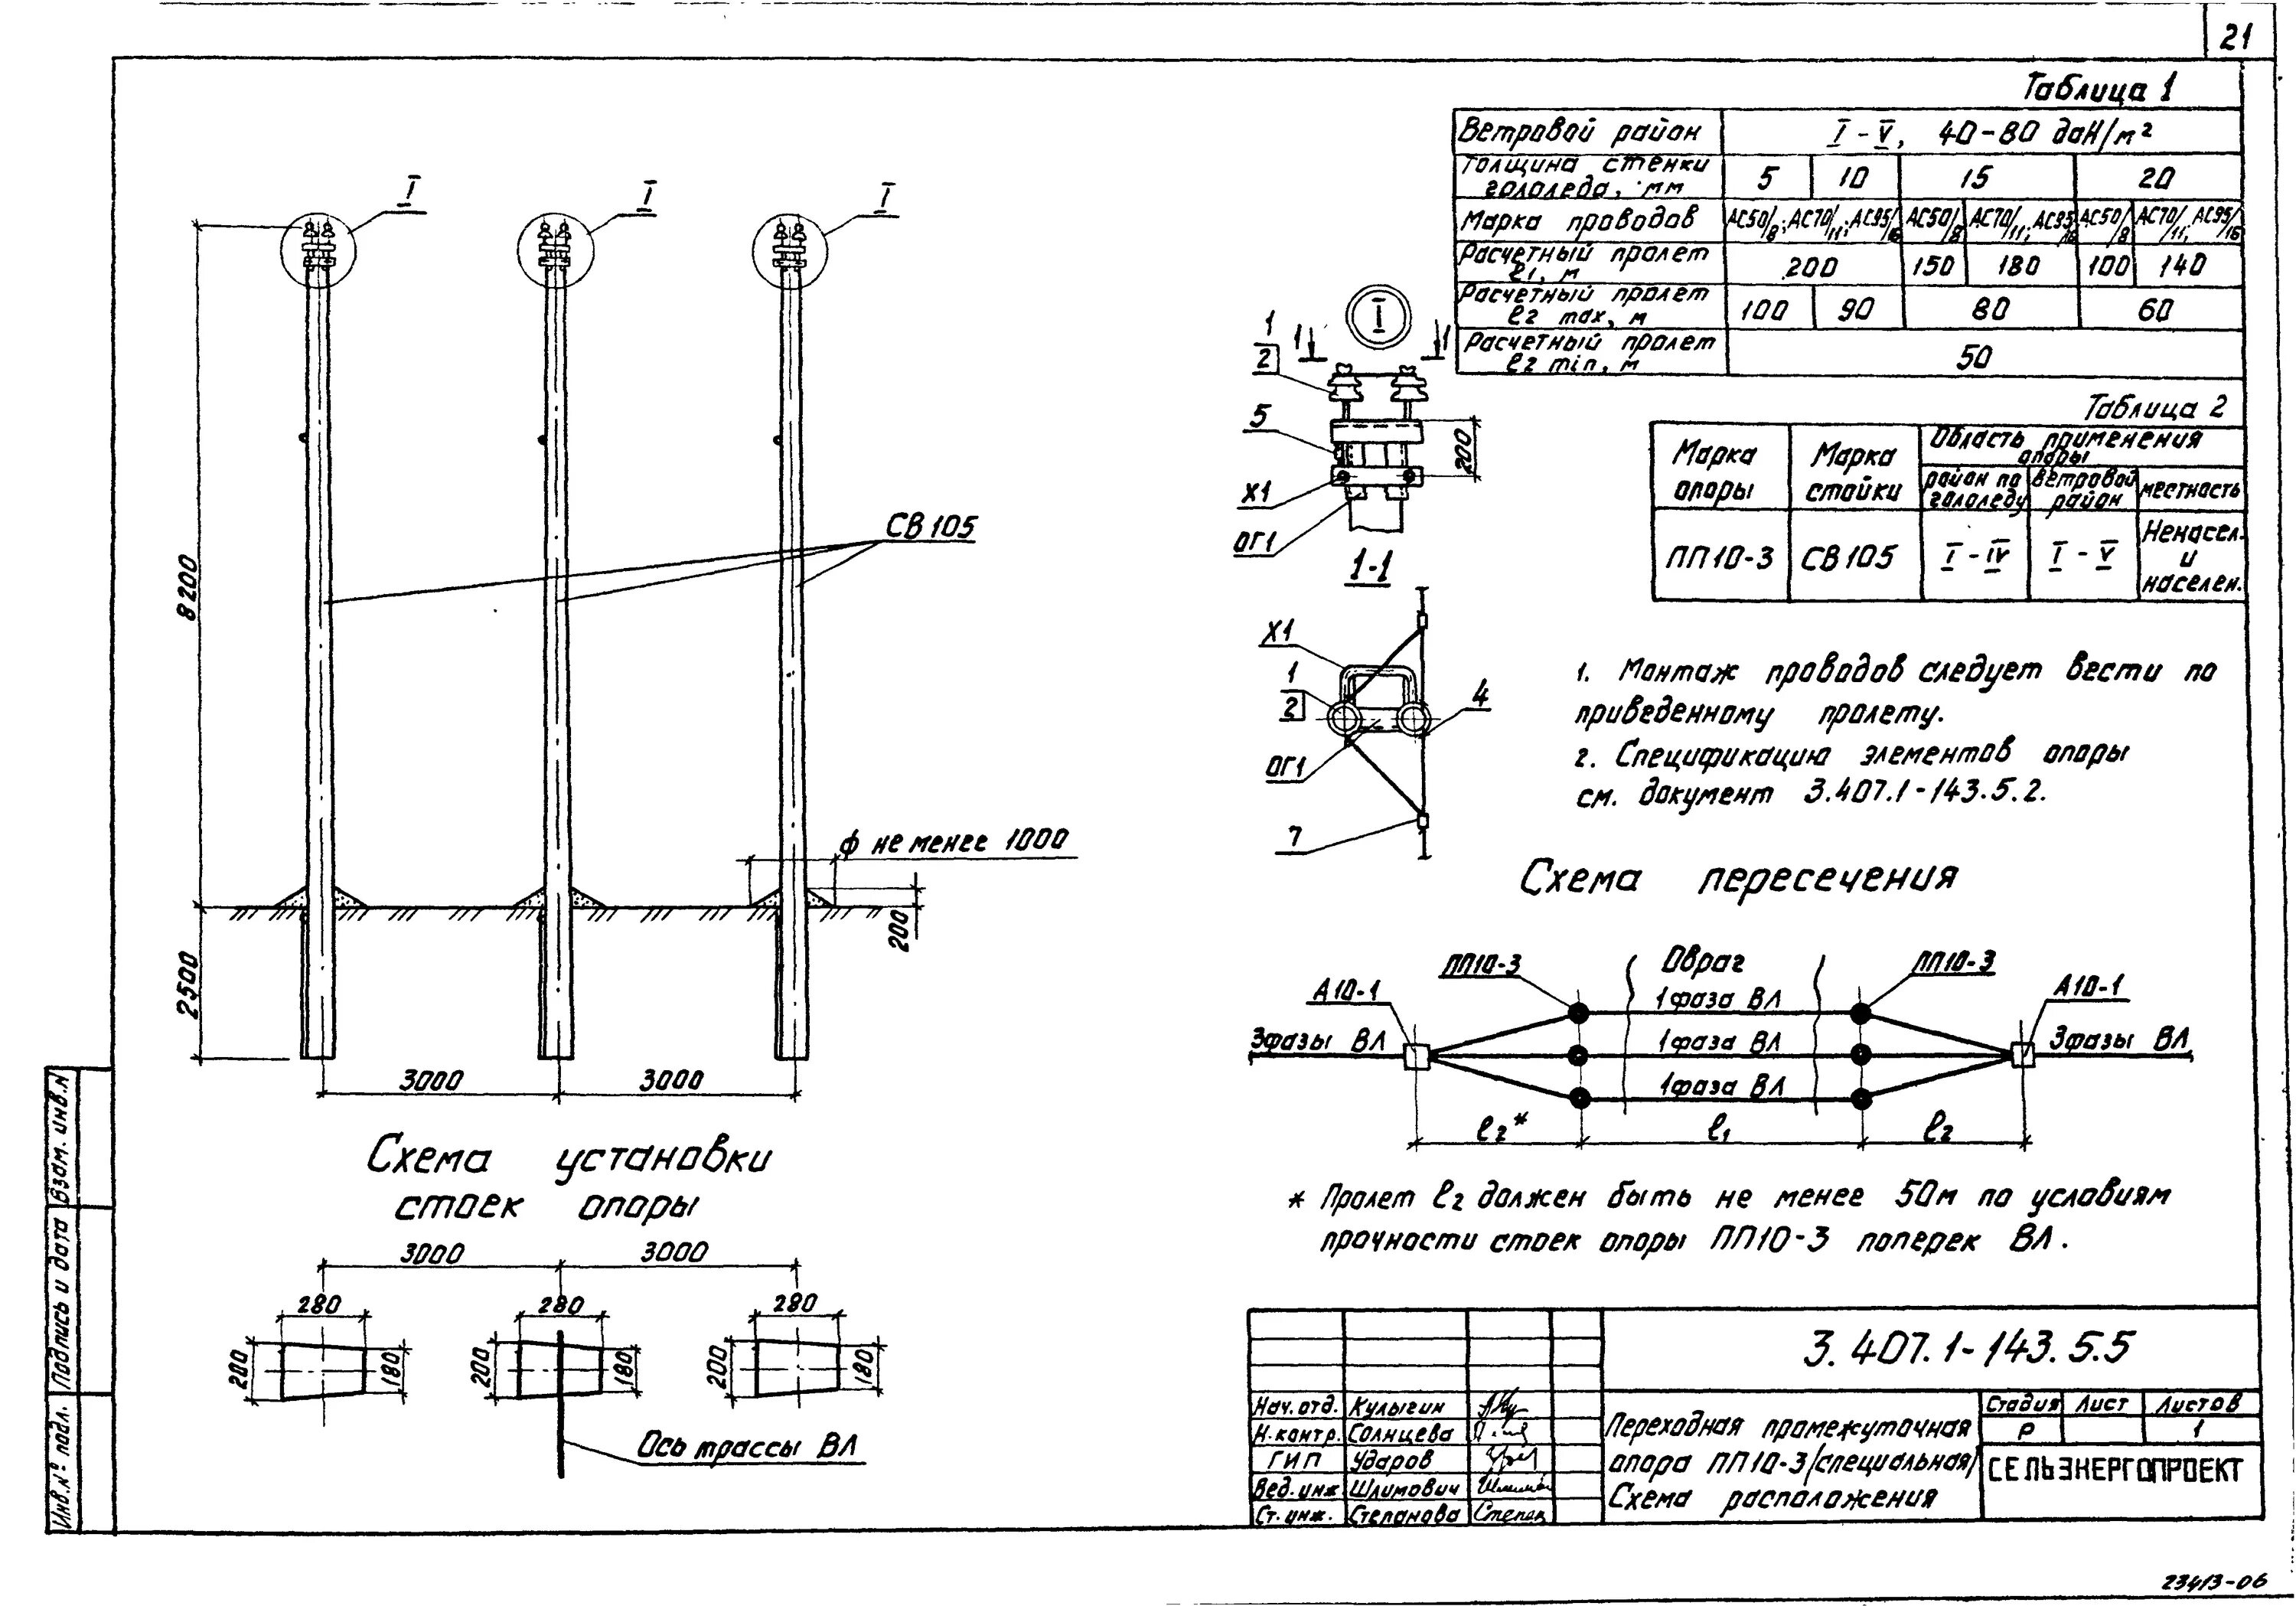 21
Таблица 1
Ветровой район I - V, 40-80 даН/м²
Толщина стенки гололеда, мм 5 10 15 20
Марка проводов АС50/8; АС70/11; АС95/16 АС50/8 АС70/11; АС95/16 АС50/8 АС70/11, АС95/16
Расчетный пролет ℓ1, м 200 150 180 100 140
Расчетный пролет ℓ2 max, м 100 90 80 60
Расчетный пролет ℓ2 min, м 50
Таблица 2
Марка опоры Марка стойки Область применения опоры
район по гололеду ветровой район местность
ПП10-3 СВ105 I - IV I - V Ненасел. и населен.
I
I
I
8200
2500
СВ105
ф не менее 1000
200
3000 3000
I
1 1
1
2
5
Х1
ОГ1
200
1-1
Х1
1
2
4
ОГ1
7
1. Монтаж проводов следует вести по
приведенному пролету.
2. Спецификацию элементов опоры
см. документ 3.407.1-143.5.2.
Схема пересечения
ПП10-3 Овраг ПП10-3
А10-1 1 фаза ВЛ А10-1
3фазы ВЛ 1 фаза ВЛ 3фазы ВЛ
1 фаза ВЛ
ℓ2* ℓ1 ℓ2
* Пролет ℓ2 должен быть не менее 50м по условиям
прочности стоек опоры ПП10-3 поперек ВЛ.
Схема установки
стоек опоры
3000 3000
280 280 280
200 180 200 180 200 180
Ось трассы ВЛ
Взам. инв.N
Подпись и дата
Инв.№ подл.
3.407.1-143.5.5
Нач.отд. Кулыгин
Н.контр. Солнцева
ГИП Ударов
Вед.инж Шлимович
Ст.инж. Степанова
Переходная промежуточная
опора ПП10-3/специальная/
Схема расположения
Стадия Лист Листов
Р 1
СЕЛЬЭНЕРГОПРОЕКТ
23413-06